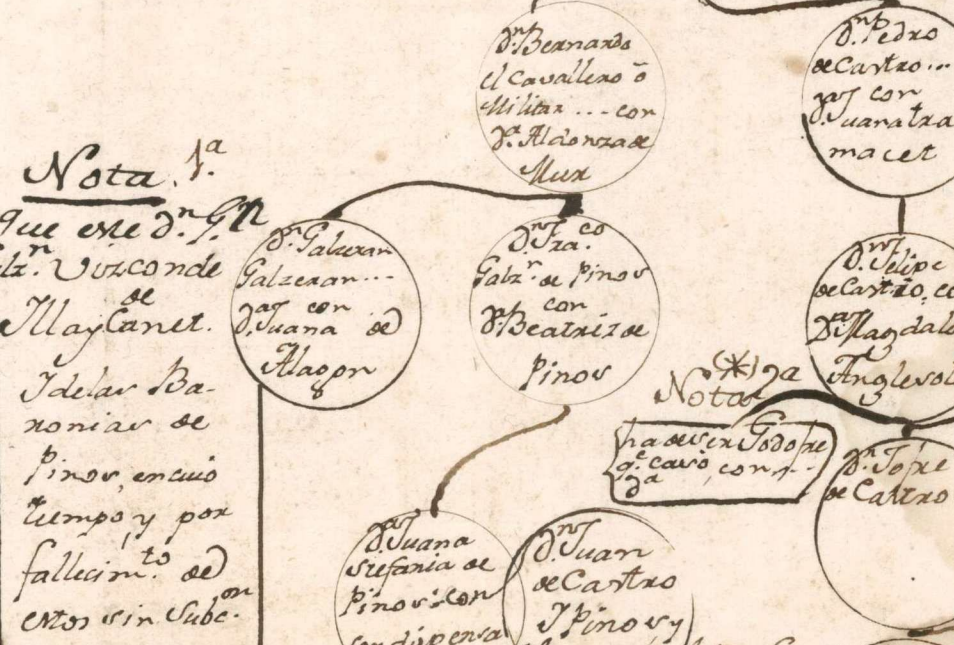 Dⁿ. Bernardo
el Cavallero ò
Militar ... con
Dª. Aldonza de
Mur
Dⁿ. Pedro
de Castro ...
con
Dª. Juana Tra
macet
Nota. 1.ª
que este Dⁿ. Gⁿ
Galzⁿ. Vizconde
de
Illa y Canet.
I de las Ba-
ronias de
Pinos, en cuio
tiempo, y por
fallecim.to de
estos sin Subc.on
Dⁿ. Galceran
Galzeran ...
con
Dª. Juana de
Alagon
8
Dⁿ. Fra.co
Galzⁿ. de Pinos
con
Dª. Beatriz de
Pinos
Dⁿ. Felipe
de Castro, co
Dª. Magdale
Anglesol
(*) 2ª
Nota
ha de ser Godofre
q.e casó, con ...
Dª
Dⁿ. Jofre
de Castro
Dª. Juana
Stefania de
Pinos: con
con dispensa
Dⁿ. Juan
de Castro
I Pinos y